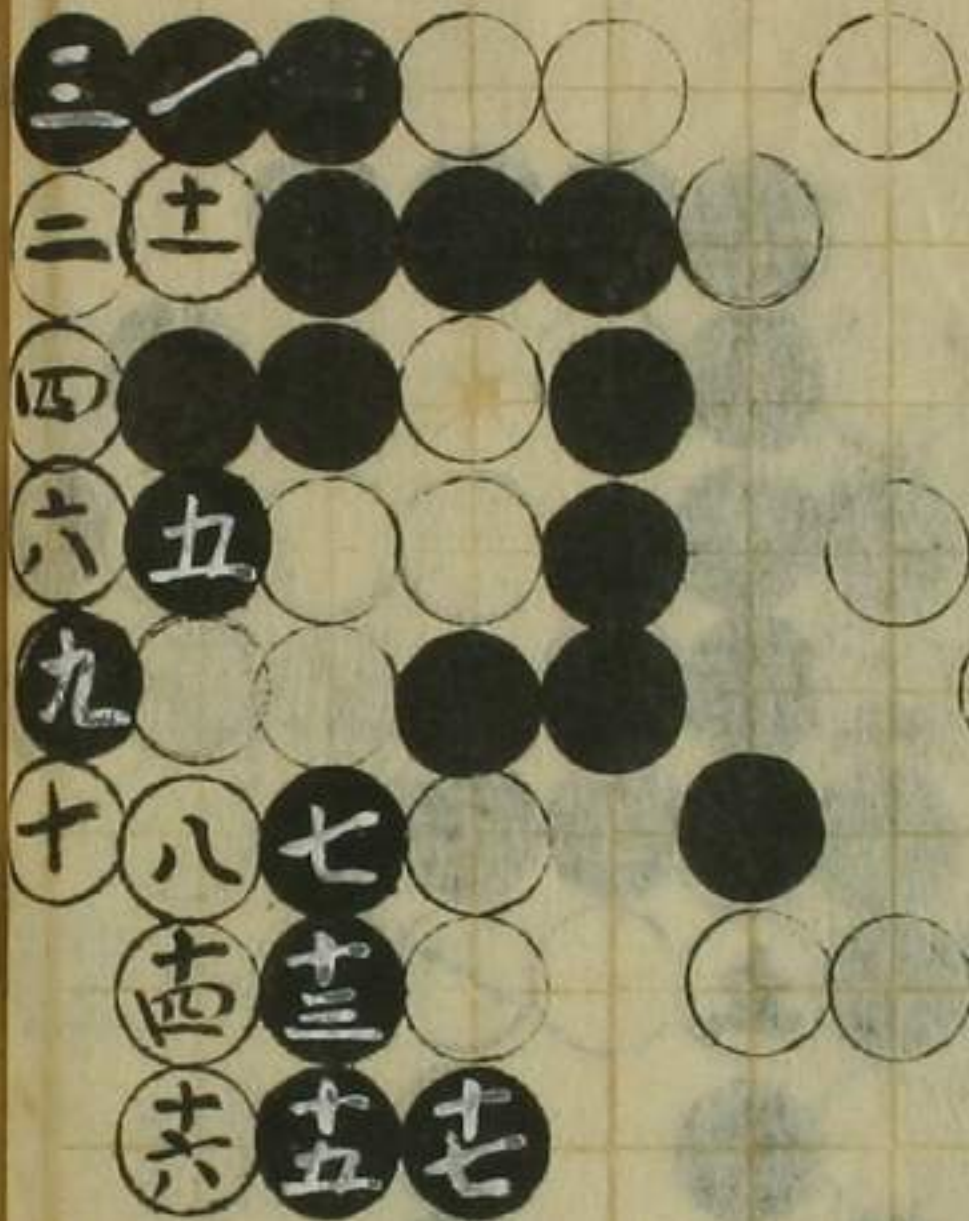 三 一
二 十二
四
六 五
九
十 八 七
十四 十三
十六 十五 十七